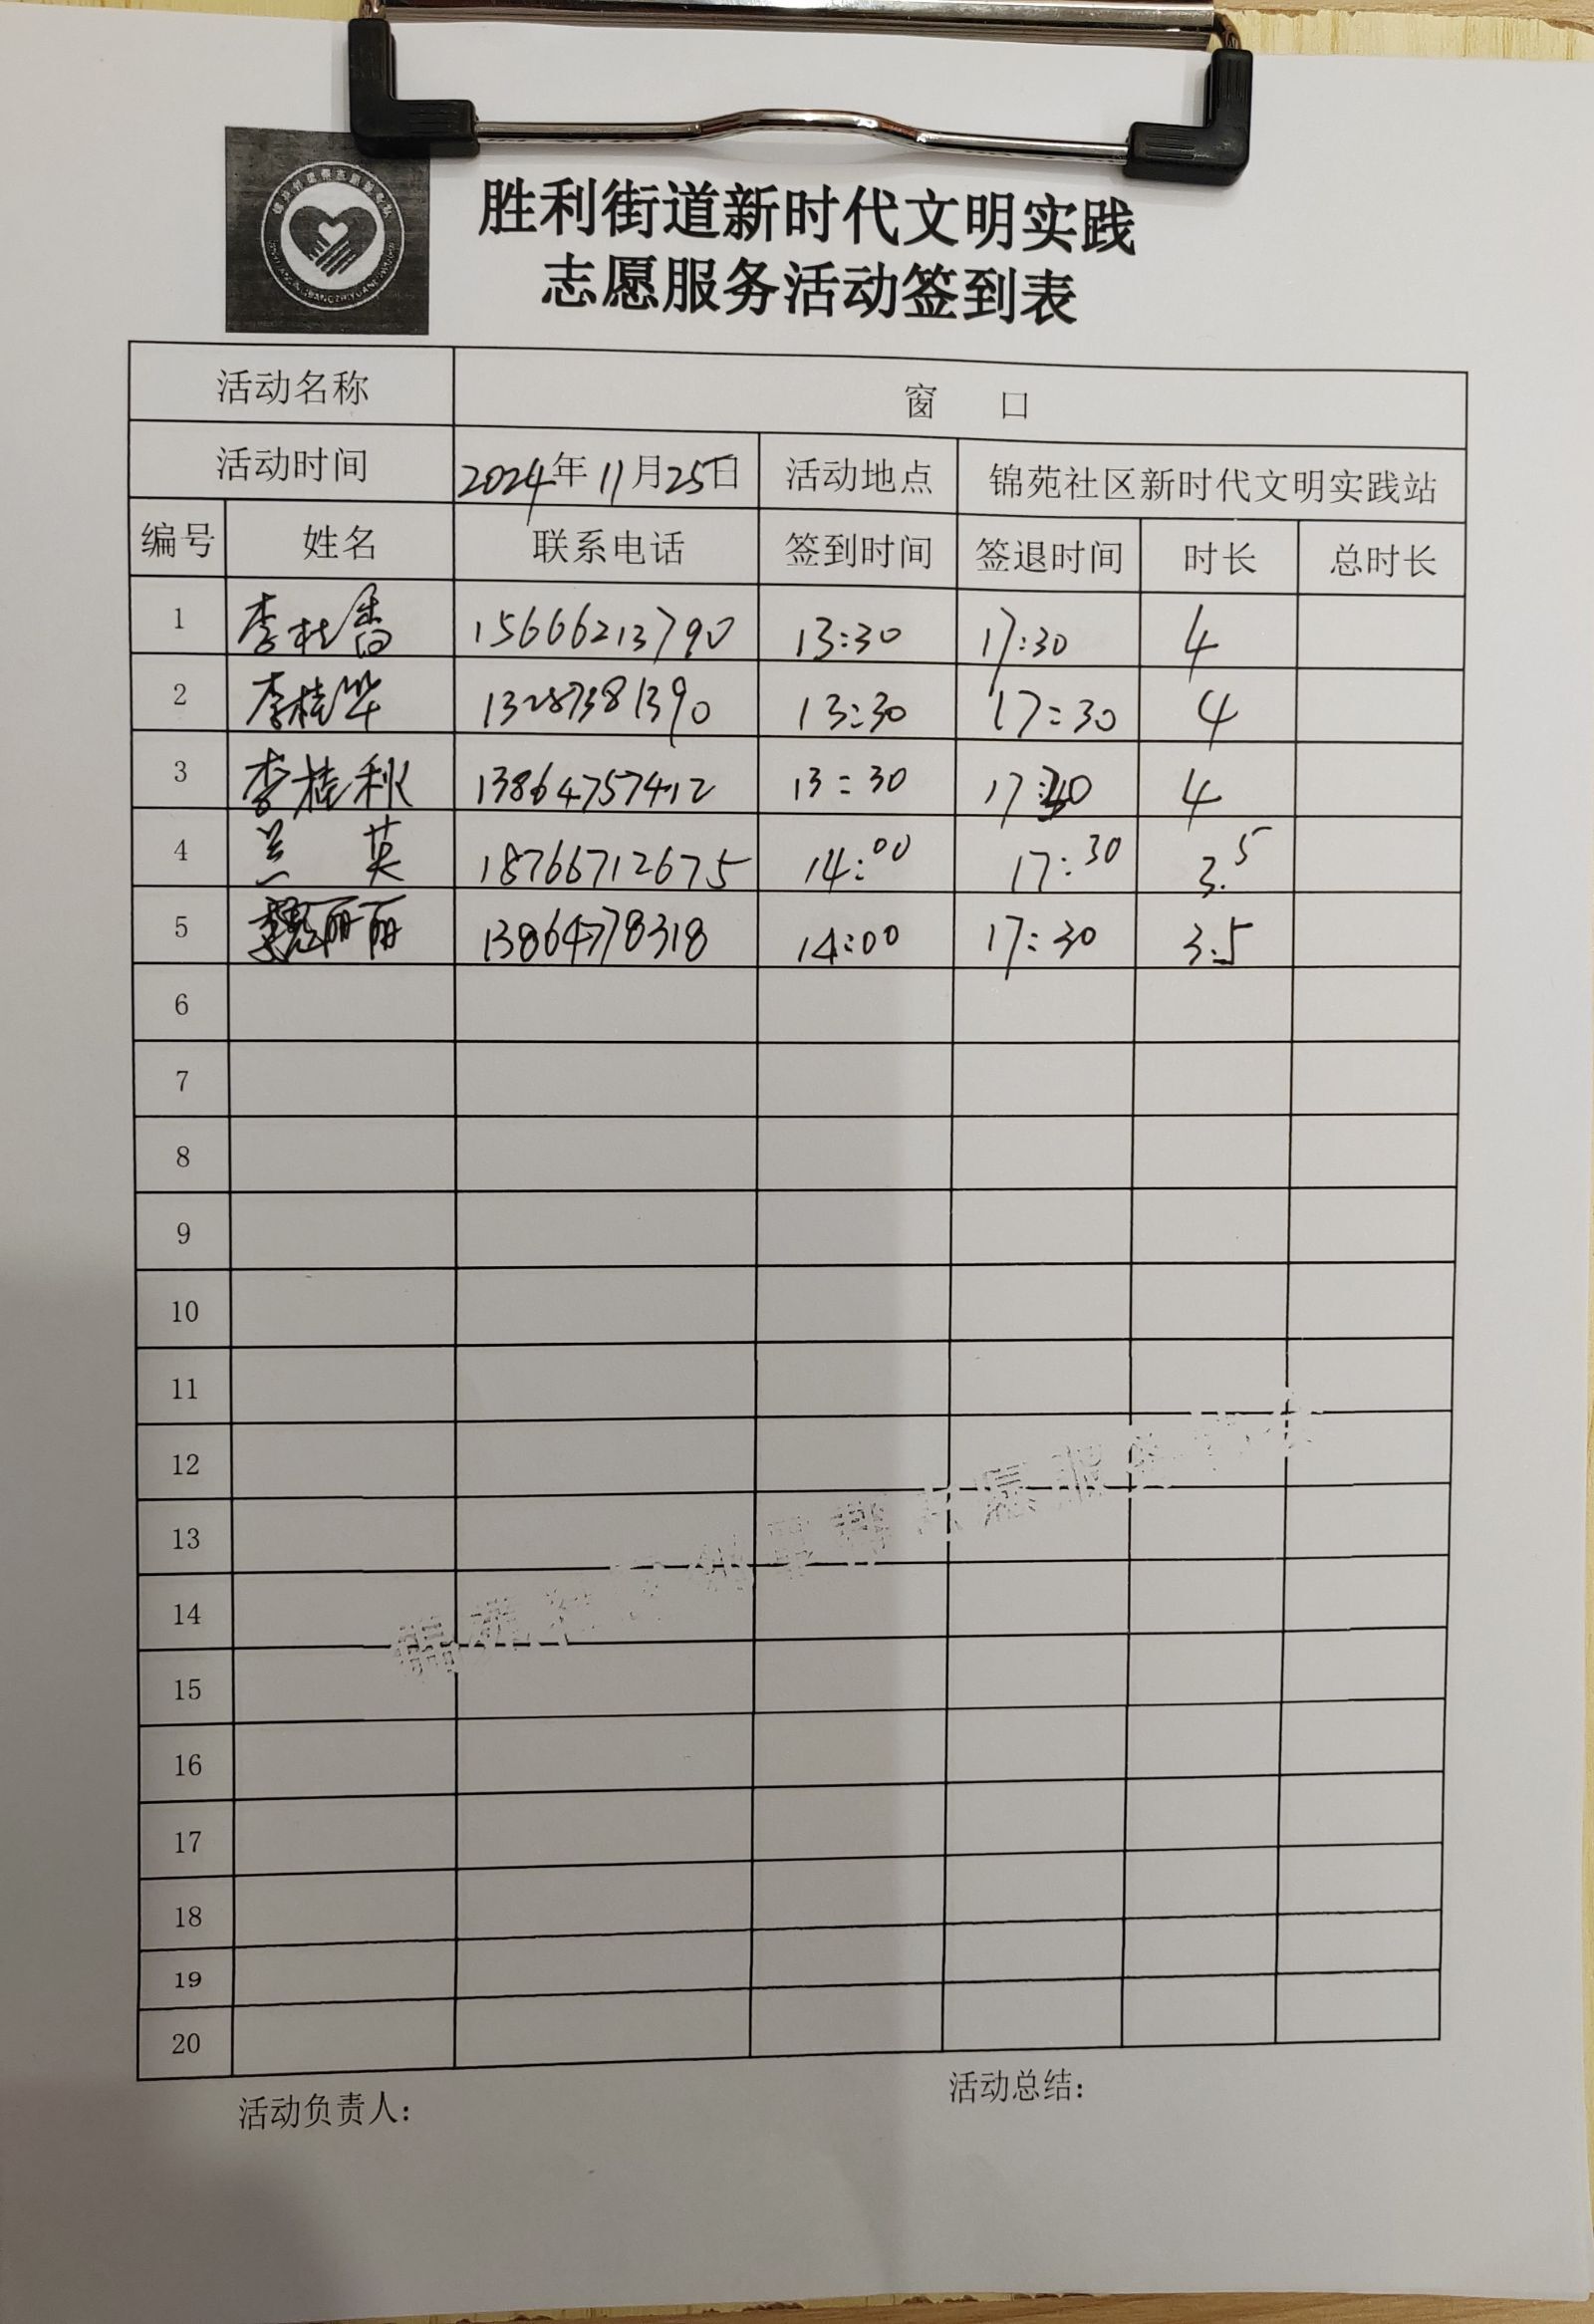 胜利街道新时代文明实践
志愿服务活动签到表
活动名称 窗 口
活动时间 2024年11月25日 活动地点 锦苑社区新时代文明实践站
编号 姓名 联系电话 签到时间 签退时间 时长 总时长
1 李杜香 15666213790 13:30 17:30 4
2 李桂华 13287381390 13:30 17:30 4
3 李桂秋 13864757412 13:30 17:30 4
4 兰英 18766712675 14:00 17:30 3.5
5 魏丽丽 13864778318 14:00 17:30 3.5
6
7
8
9
10
11
12
13
14
15
16
17
18
19
20
活动负责人： 活动总结：